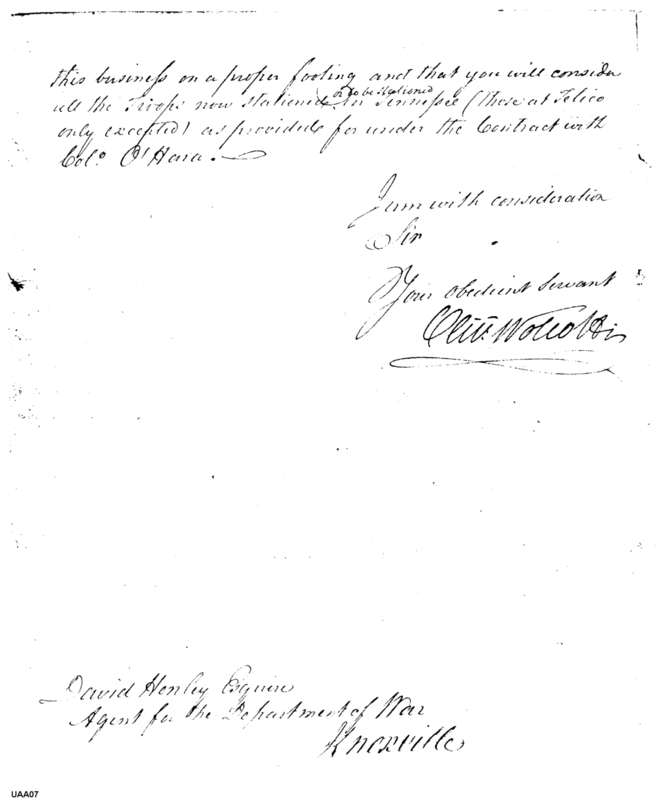 this business on a proper footing and that you will consider
all the Troops now stationed or to be stationed in Tennessee (those at Telico
only excepted) as provided for under the Contract with
Colo. O'Hara.
I am with consideration
Sir
Your obedient Servant
Oliv. Wolcott
David Henley Esquire
Agent for the Department of War
Knoxville
UAA07